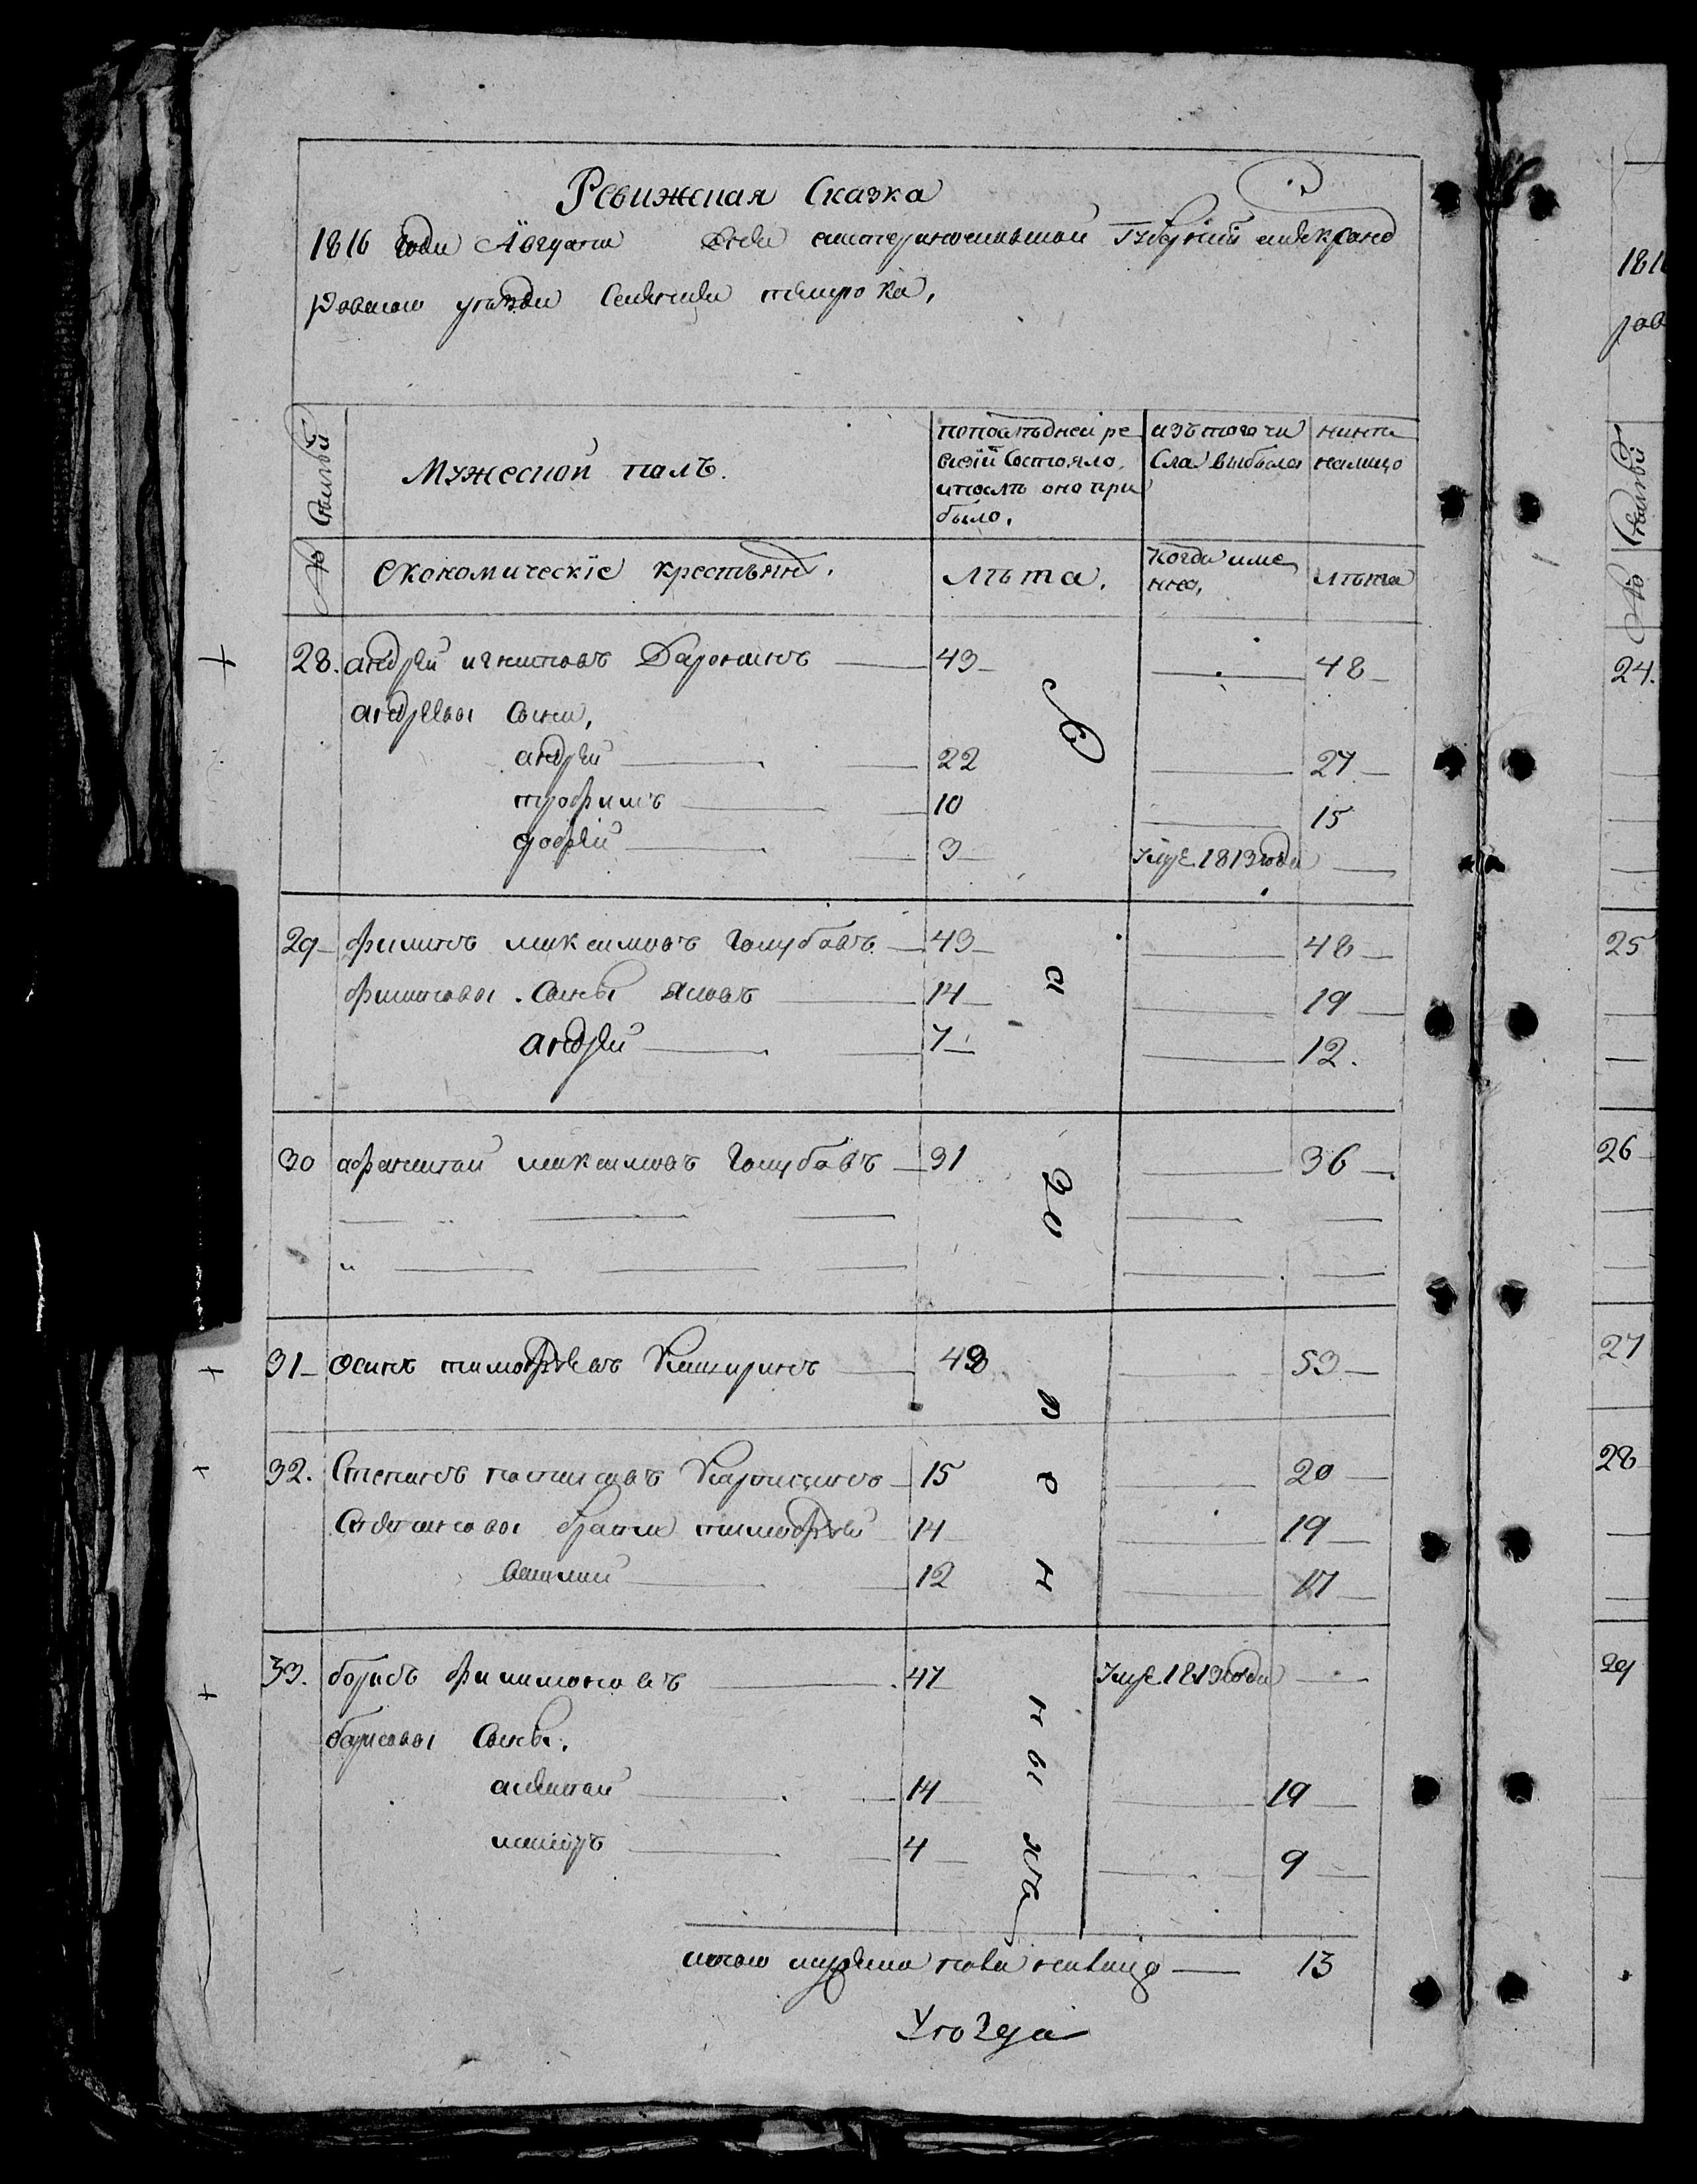 Ревижская Сказка
1816 года Августа дня екатеринославской Губерний александ
ровского уезда Селения темрюка,
№ Семьей
Мужеской полъ.
попоследней ре
визïи Состояло,
ипосле оно при
было,
изътого чи
Сла выбыло
ныне
налицо
Економическïе крестьяне.
лѣта.
когда име
нно,
лѣта
28. андрей игнатовъ 43 48
андреевы Сыны,
андрей 22 27
трофимъ 10 15
3 умре 1813 года
29 филипъ максимовъ Голубовъ 43 48
филиповы Сыны яковъ 14 19
андрей 7 12.
30 афанасей максимовъ Голубовъ 31 36
31 осипъ тимофеевъ 48 53
32. Степанъ 15 20
Степановы братья тимофей 14 19
василий 12 17
33. борисъ филимоновъ 47 умре 1813 года
борисовы Сыны.
алексей 14 19
4 9
итого мужеска пола налицо 13
1816
ров
№ Семьей
24.
25
26
27
28
29